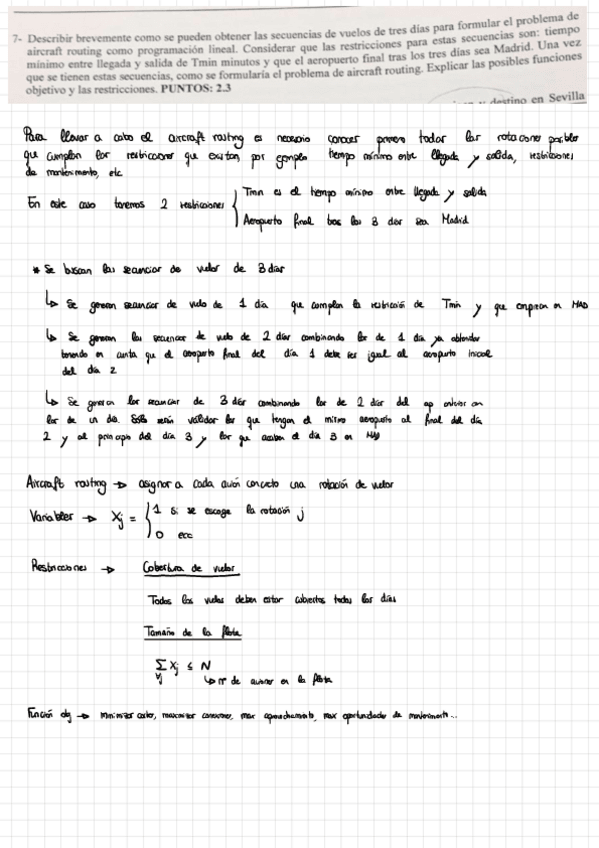 7- Describir brevemente como se pueden obtener las secuencias de vuelos de tres días para formular el problema de
aircraft routing como programación lineal. Considerar que las restricciones para estas secuencias son: tiempo
mínimo entre llegada y salida de Tmin minutos y que el aeropuerto final tras los tres días sea Madrid. Una vez
que se tienen estas secuencias, como se formularía el problema de aircraft routing. Explicar las posibles funciones
objetivo y las restricciones. PUNTOS: 2.3
destino en Sevilla
Para llevar a cabo el aircraft routing es necesario conocer primero todas las rotaciones posibles
que cumplan las restricciones que existan, por ejemplo tiempo mínimo entre llegada y salida, restricciones
de mantenimiento, etc
En este caso tenemos 2 restricciones
Tmin es el tiempo mínimo entre llegada y salida
Aeropuerto final tras los 3 días sea Madrid
* Se buscan las secuencias de vuelos de 3 días
↳ Se generan secuencias de vuelo de 1 día que cumplan la restricción de Tmin y que empiecen en MAD
↳ Se generan las secuencias de vuelo de 2 días combinando las de 1 día ya obtenidas
teniendo en cuenta que el aeropuerto final del día 1 debe ser igual al aeropuerto inicial
del día 2
↳ Se generan las secuencias de 3 días combinando las de 2 días del ap anterior con
las de un día. Sólo serán válidas las que tengan el mismo aeropuerto al final del día
2 y al principio del día 3 y las que acaben el día 3 en MAD
Aircraft routing → asignar a cada avión concreto una rotación de vuelos
Variables → Xj = { 1 si se escoge la rotación j
0 ecc
Restricciones → Cobertura de vuelos
Todos los vuelos deben estar cubiertos todos los días
Tamaño de la flota
Σ Xj ≤ N
∀j
↳ nº de aviones en la flota
Función obj → minimizar costes, maximizar conexiones, max aprovechamiento, max oportunidades de mantenimiento...